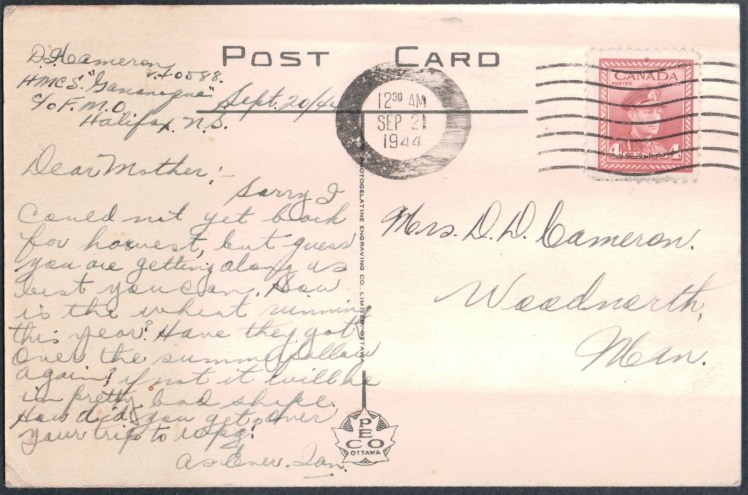 POST CARD
D. Cameron
V-10888.
HMCS. "Gananoque"
c/o F.M.O.
Halifax, N.S.
Sept. 20/44
Dear Mother:-
Sorry I
could not get back
for harvest, but guess
you are getting along as
best you can. How
is the wheat running
this year? Have they got
over the summerfallow
again? if not it will be
in pretty bad shape.
How did you get over
your trip to Wpg?
As Ever. Ian.
12 30 AM
SEP 21
1944
CANADA
POSTES POSTAGE
4 CENTS 4
Mrs. D. D. Cameron.
Woodnorth,
Man.
PHOTOGELATINE ENGRAVING CO. LIMITED, OTTAWA
PECO
OTTAWA